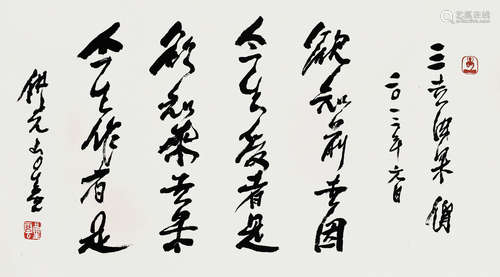 三世因果
二〇一三年元月
欲知前世因
今生受者是
欲知來世果
今生作者是